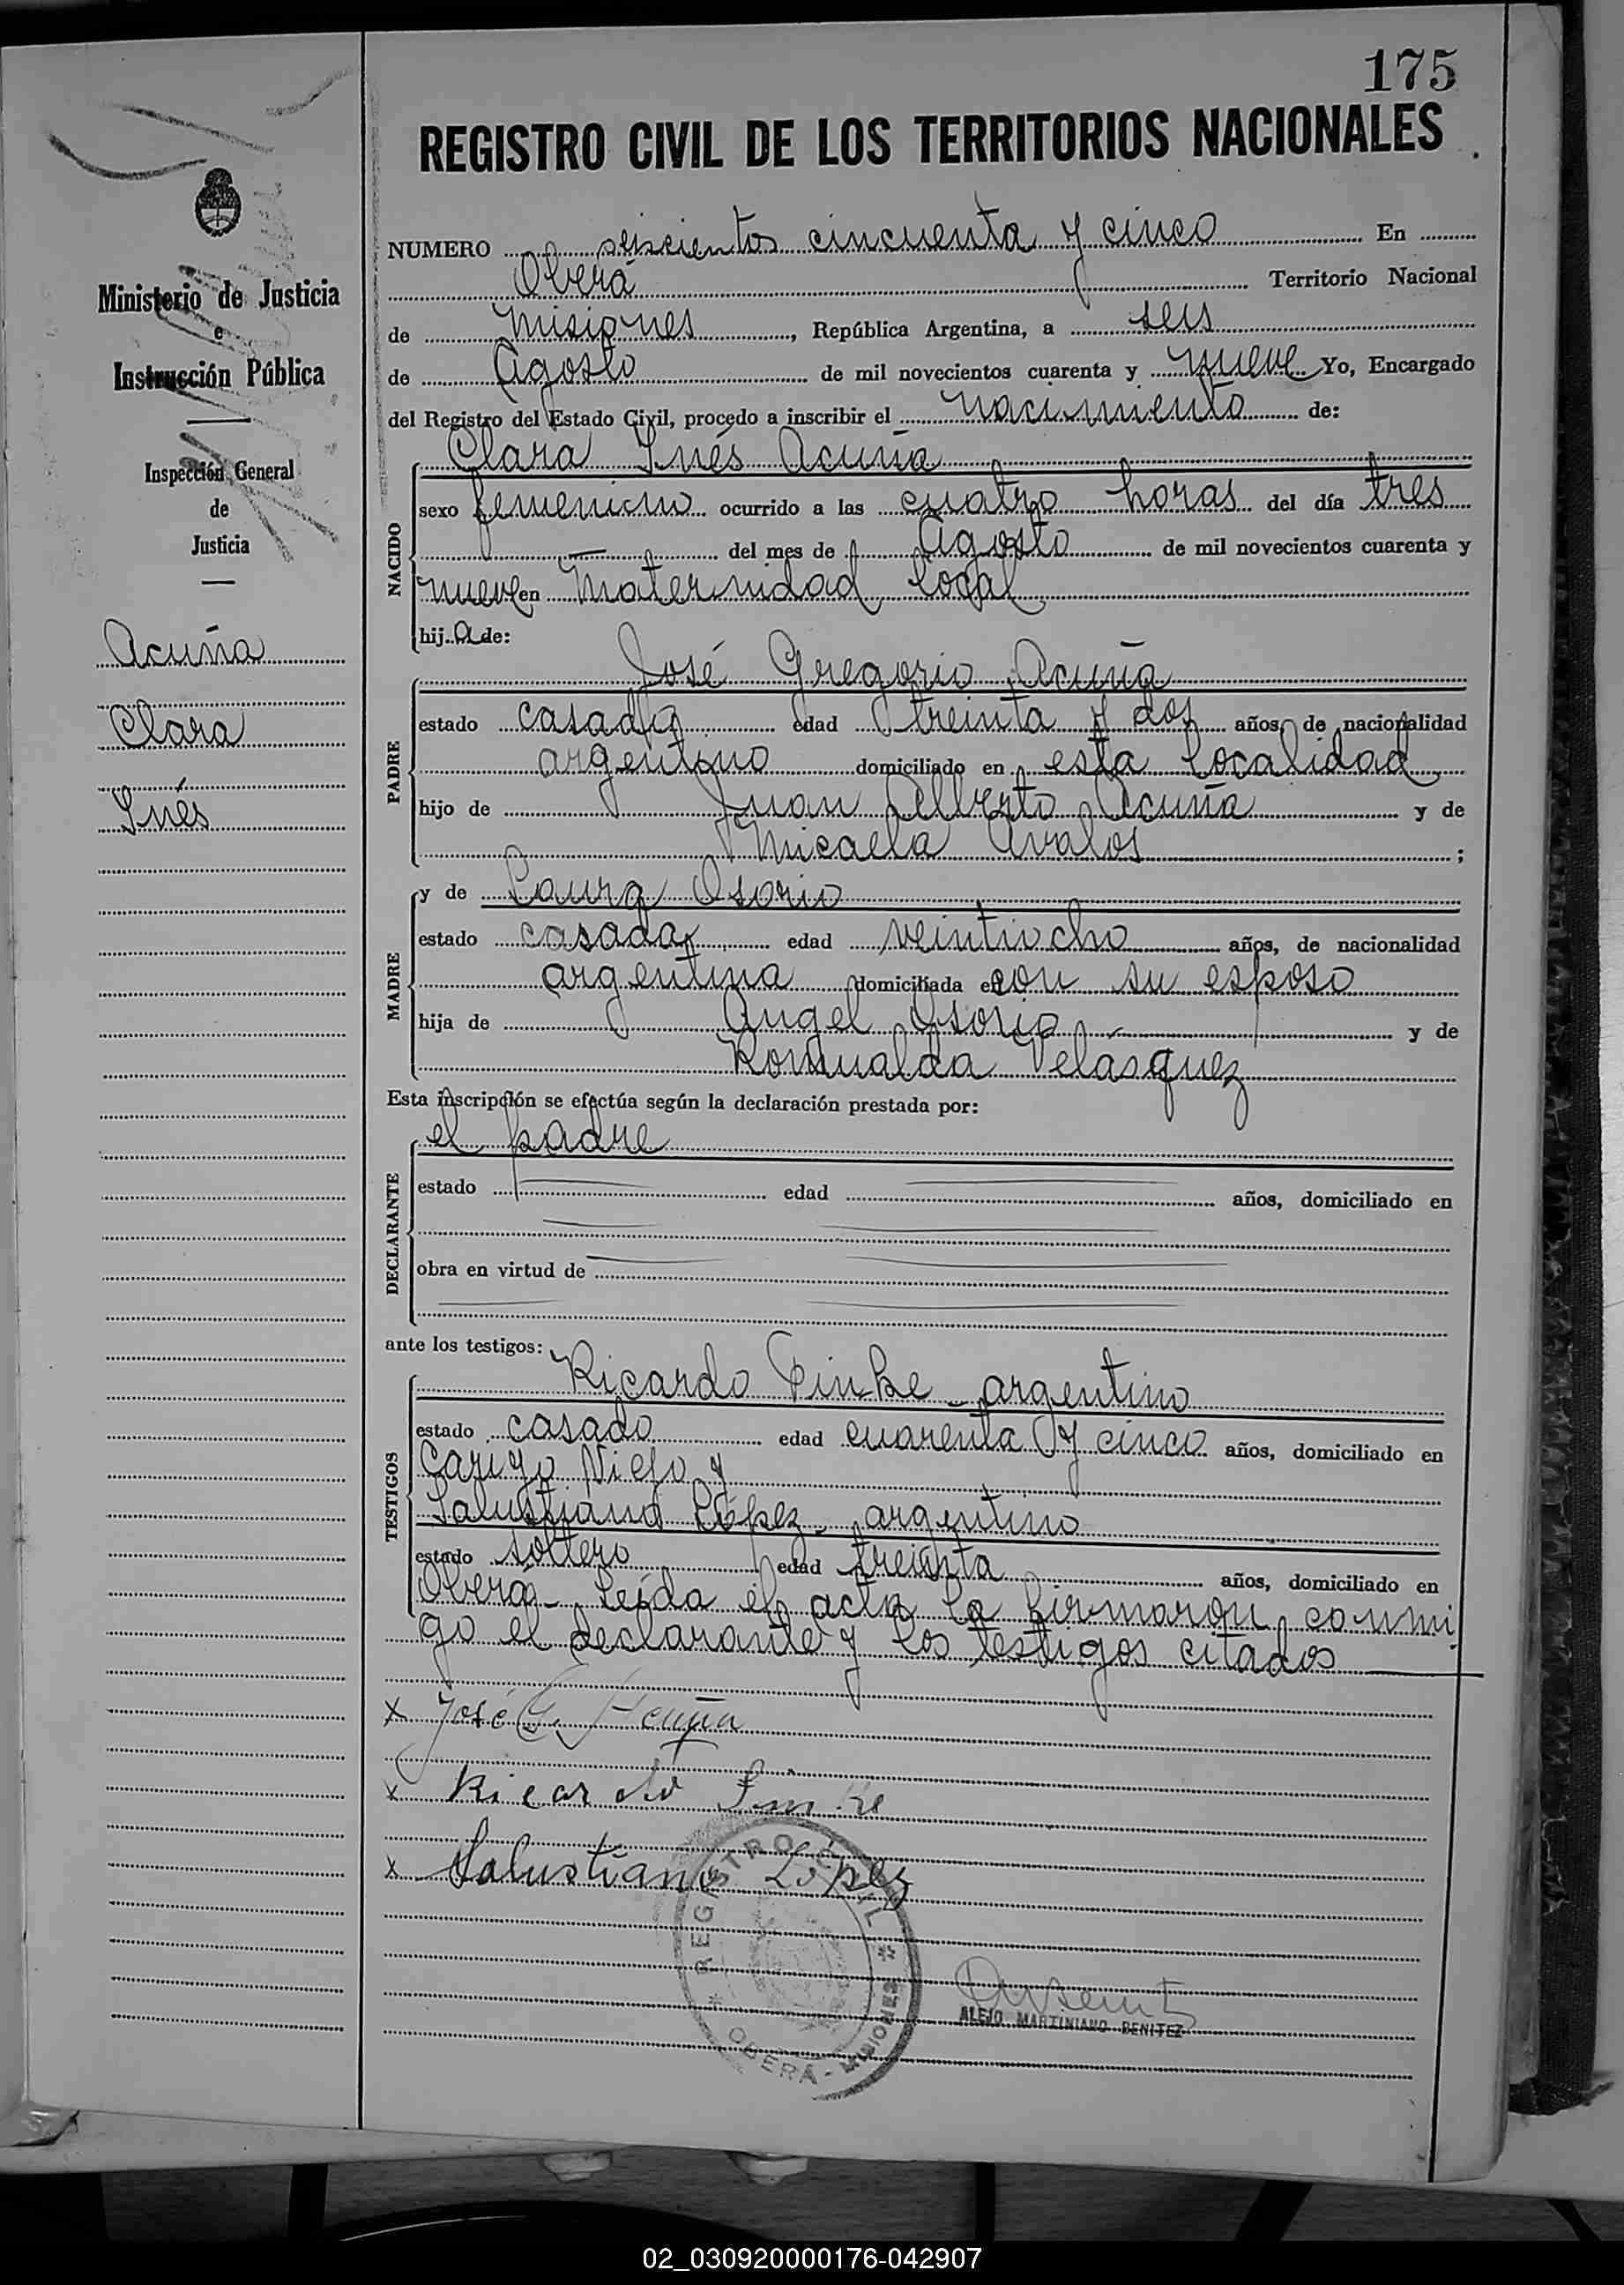 175
REGISTRO CIVIL DE LOS TERRITORIOS NACIONALES
Ministerio de Justicia
e
Instrucción Pública
Inspección General
de
Justicia
Acuña
Clara
Inés
NUMERO seiscientos cincuenta y cinco En
Oberá Territorio Nacional
de Misiones, República Argentina, a seis
de Agosto de mil novecientos cuarenta y nueve Yo, Encargado
del Registro del Estado Civil, procedo a inscribir el nacimiento de:
Clara Inés Acuña
NACIDO
sexo femenino ocurrido a las cuatro horas del día tres
del mes de Agosto de mil novecientos cuarenta y
nueve en Maternidad local
hija de:
José Gregorio Acuña
PADRE
estado casado edad treinta y dos años, de nacionalidad
argentino domiciliado en esta localidad
hijo de Juan Alberto Acuña y de
Micaela Avalos ;
y de Laura Osorio
MADRE
estado casada edad veintiocho años, de nacionalidad
argentina domiciliada en con su esposo
hija de Angel Osorio y de
Romualda Velásquez
Esta inscripción se efectúa según la declaración prestada por:
el padre
DECLARANTE
estado edad años, domiciliado en
obra en virtud de
ante los testigos:
Ricardo Finke argentino
TESTIGOS
estado casado edad cuarenta y cinco años, domiciliado en
Viejo y
Salustiano López - argentino
estado soltero edad treinta años, domiciliado en
Oberá - Leída el acta la firmaron conmi
go el declarante y los testigos citados
x José G. Acuña
x Ricardo Finke
x Salustiano López
REGISTRO CIVIL * OBERÁ - MISIONES *
ALEJO MARTINIANO BENITEZ
02_030920000176-042907